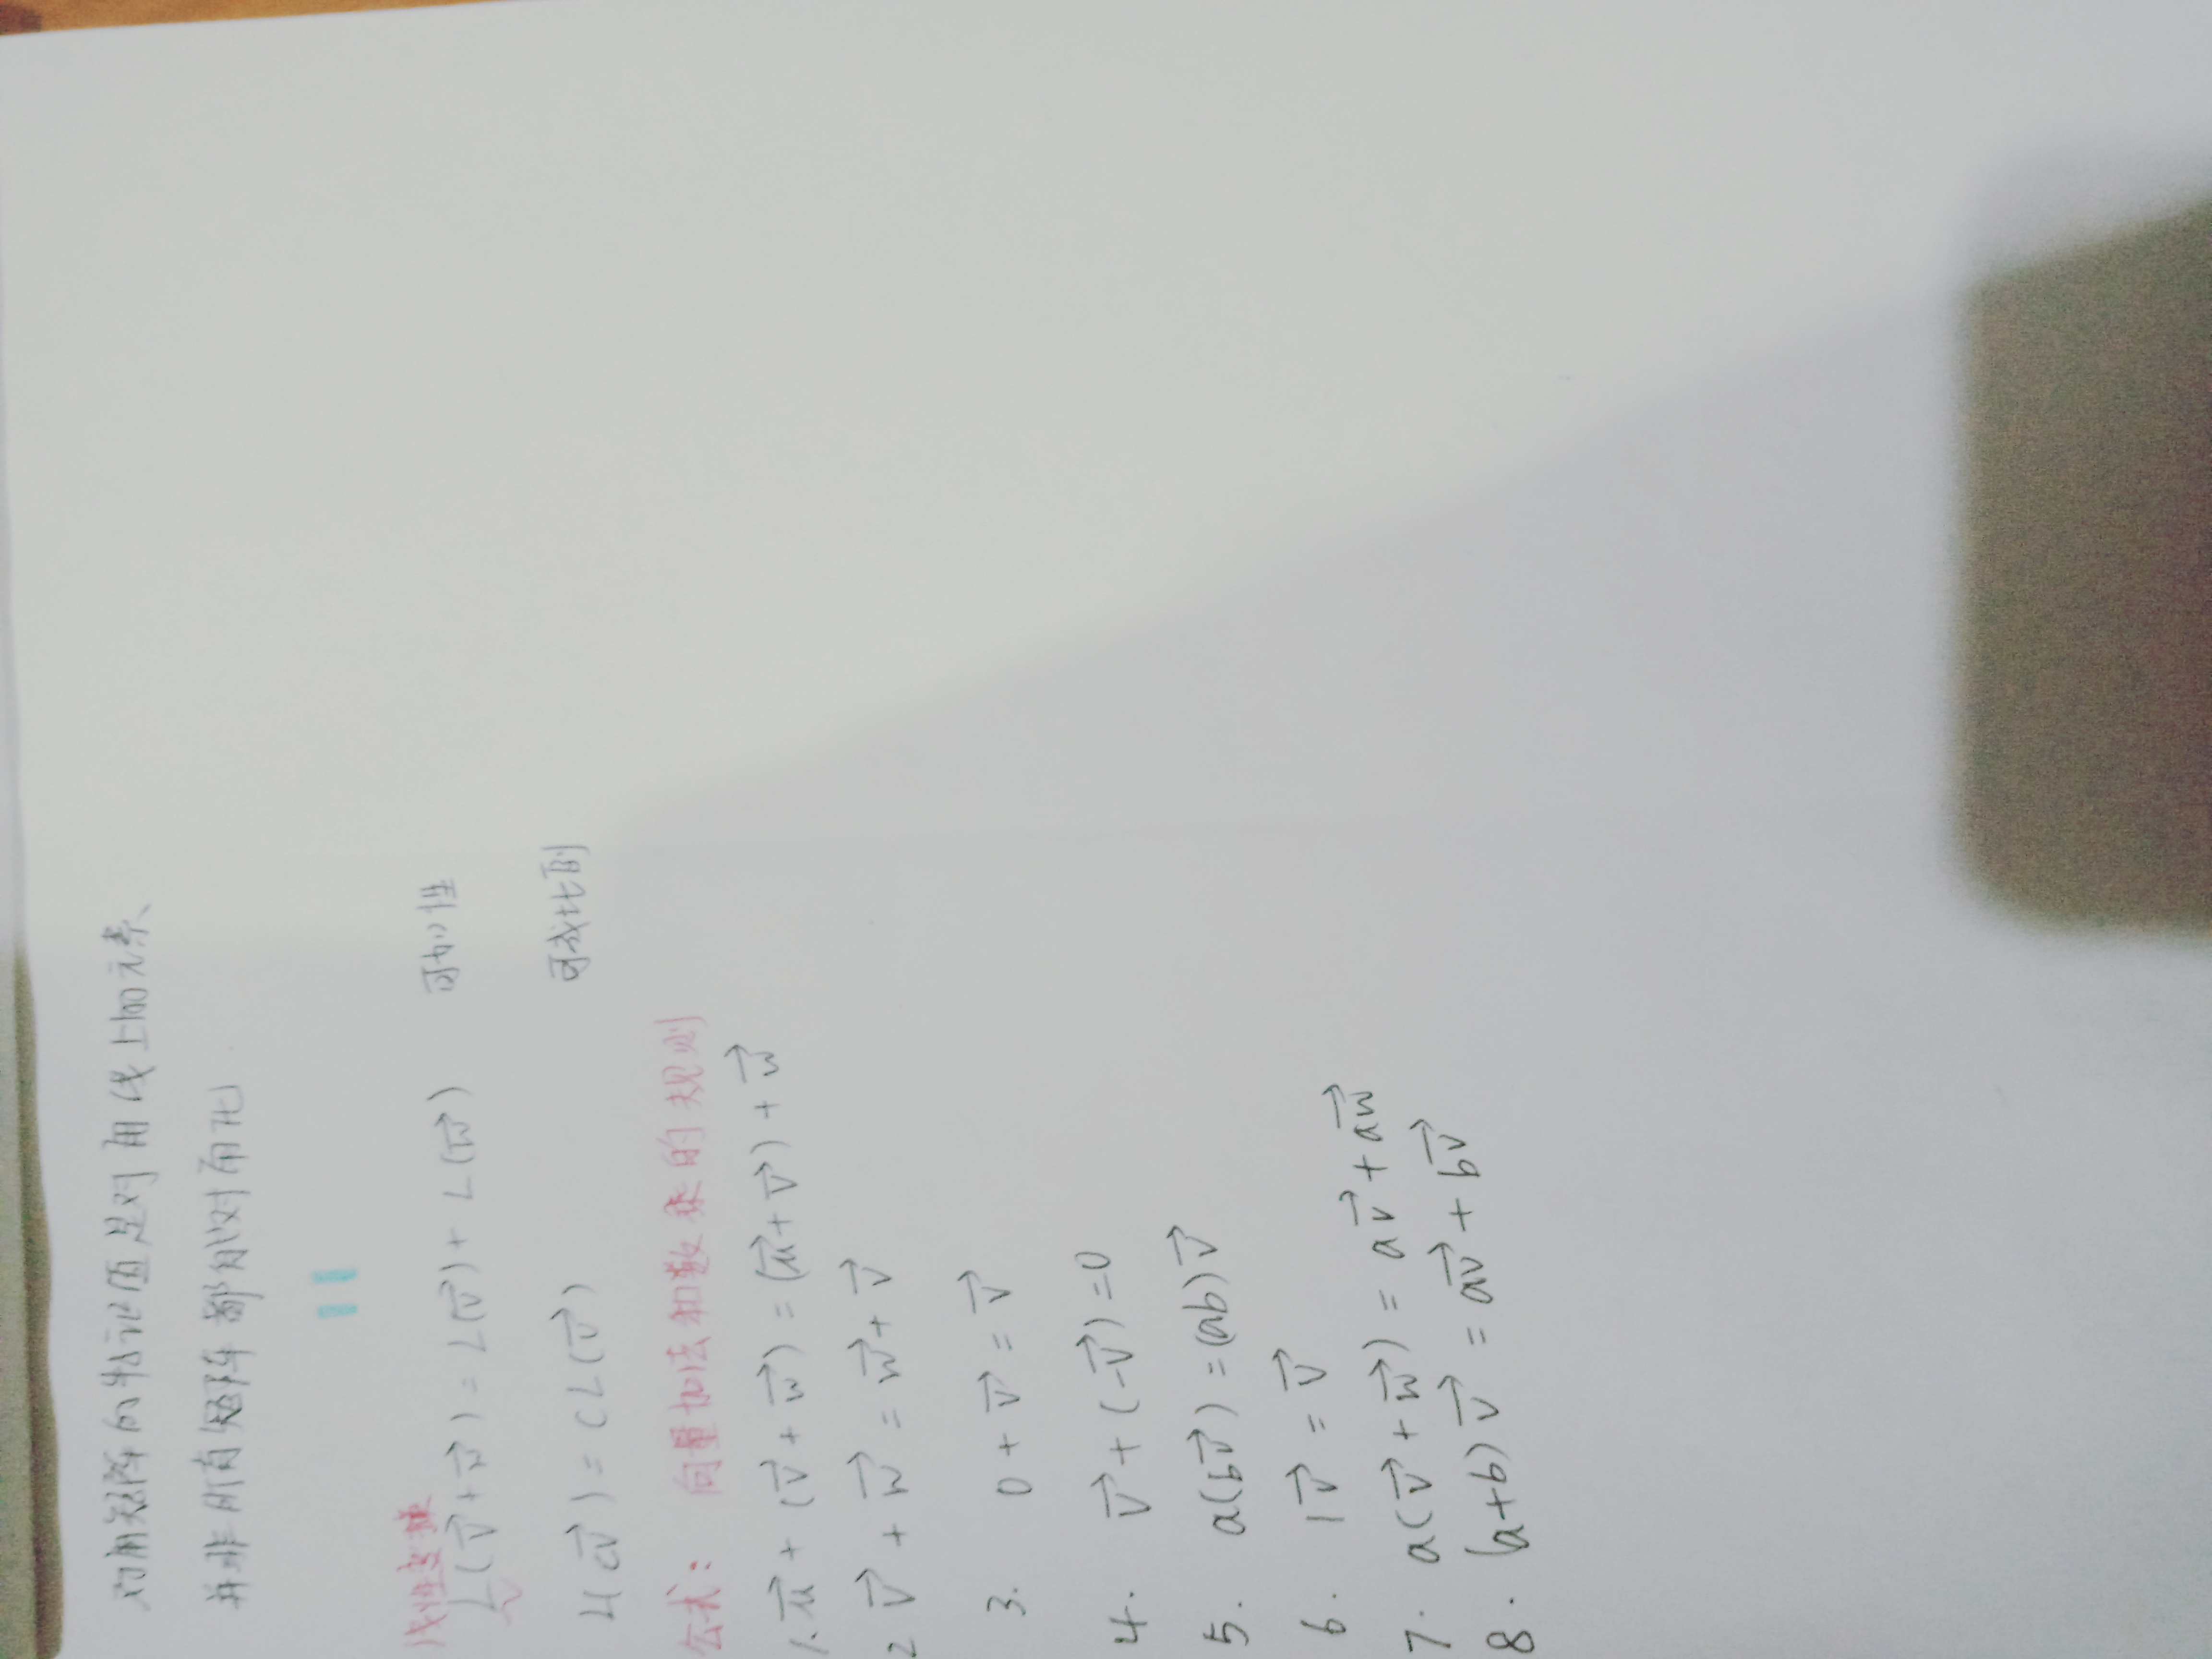 对角矩阵的特征值是对角线上的元素、
并非所有矩阵都能对角化.
线性变换
L(v⃗+w⃗) = L(v⃗) + L(w⃗) 可加性
L(cv⃗) = cL(v⃗) 可成比例
公式: 向量加法和数乘的规则
1. u⃗ + (v⃗ + w⃗) = (u⃗ + v⃗) + w⃗
2 v⃗ + w⃗ = w⃗ + v⃗
3. 0 + v⃗ = v⃗
4. v⃗ + (-v⃗) = 0
5. a(bv⃗) = (ab)v⃗
6. 1v⃗ = v⃗
7. a(v⃗ + w⃗) = av⃗ + aw⃗
8. (a+b)v⃗ = av⃗ + bv⃗